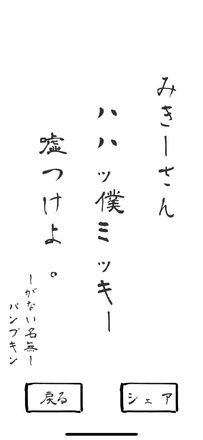 みきーさん
ハハッ僕ミッキー
嘘つけよ。
しがない名無し
パンプキン
戻る
シェア